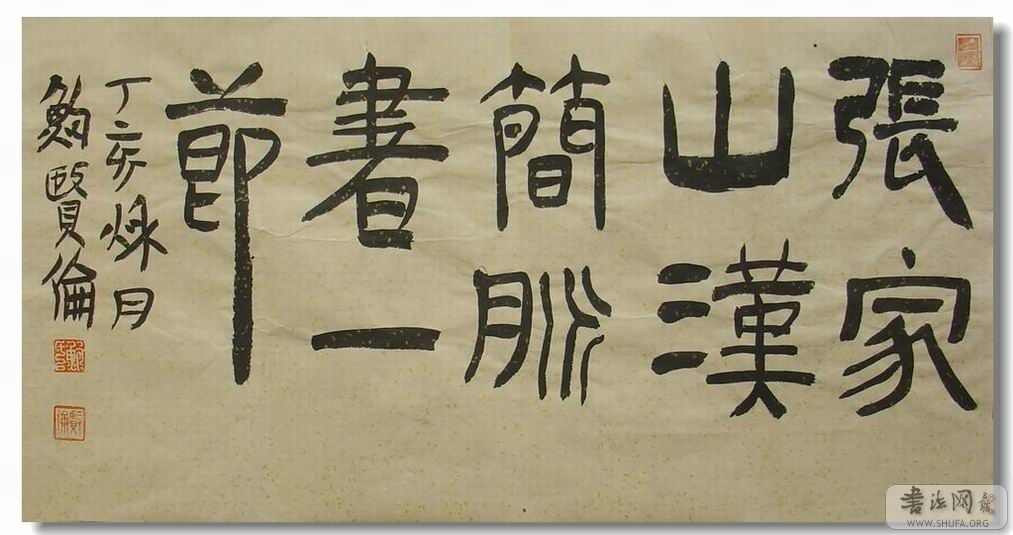 張家
山漢
簡脈
書一
節
丁亥秋月
鮑賢倫
書法网
WWW.SHUFA.ORG